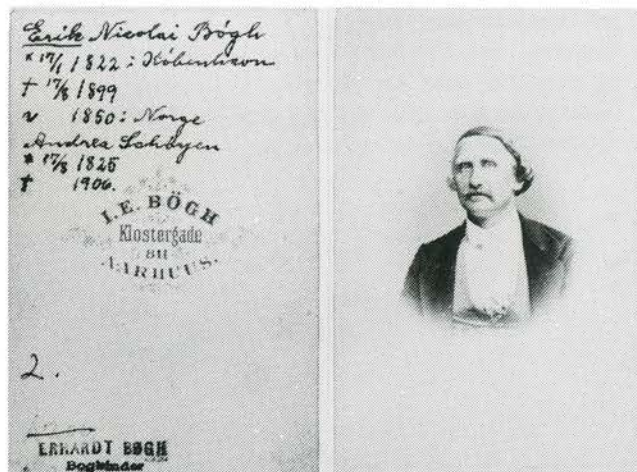 Erik Nicolai Bögh
* 17/1 1822 : Köbenhavn
† 17/8 1899
v 1850 : Norge
Andrea Schöyen
* 17/8 1825
† 1906.
I. E. BÖGH
Klostergade
AARHUUS.
2.
ERHARDT BØGH
Bogbinder